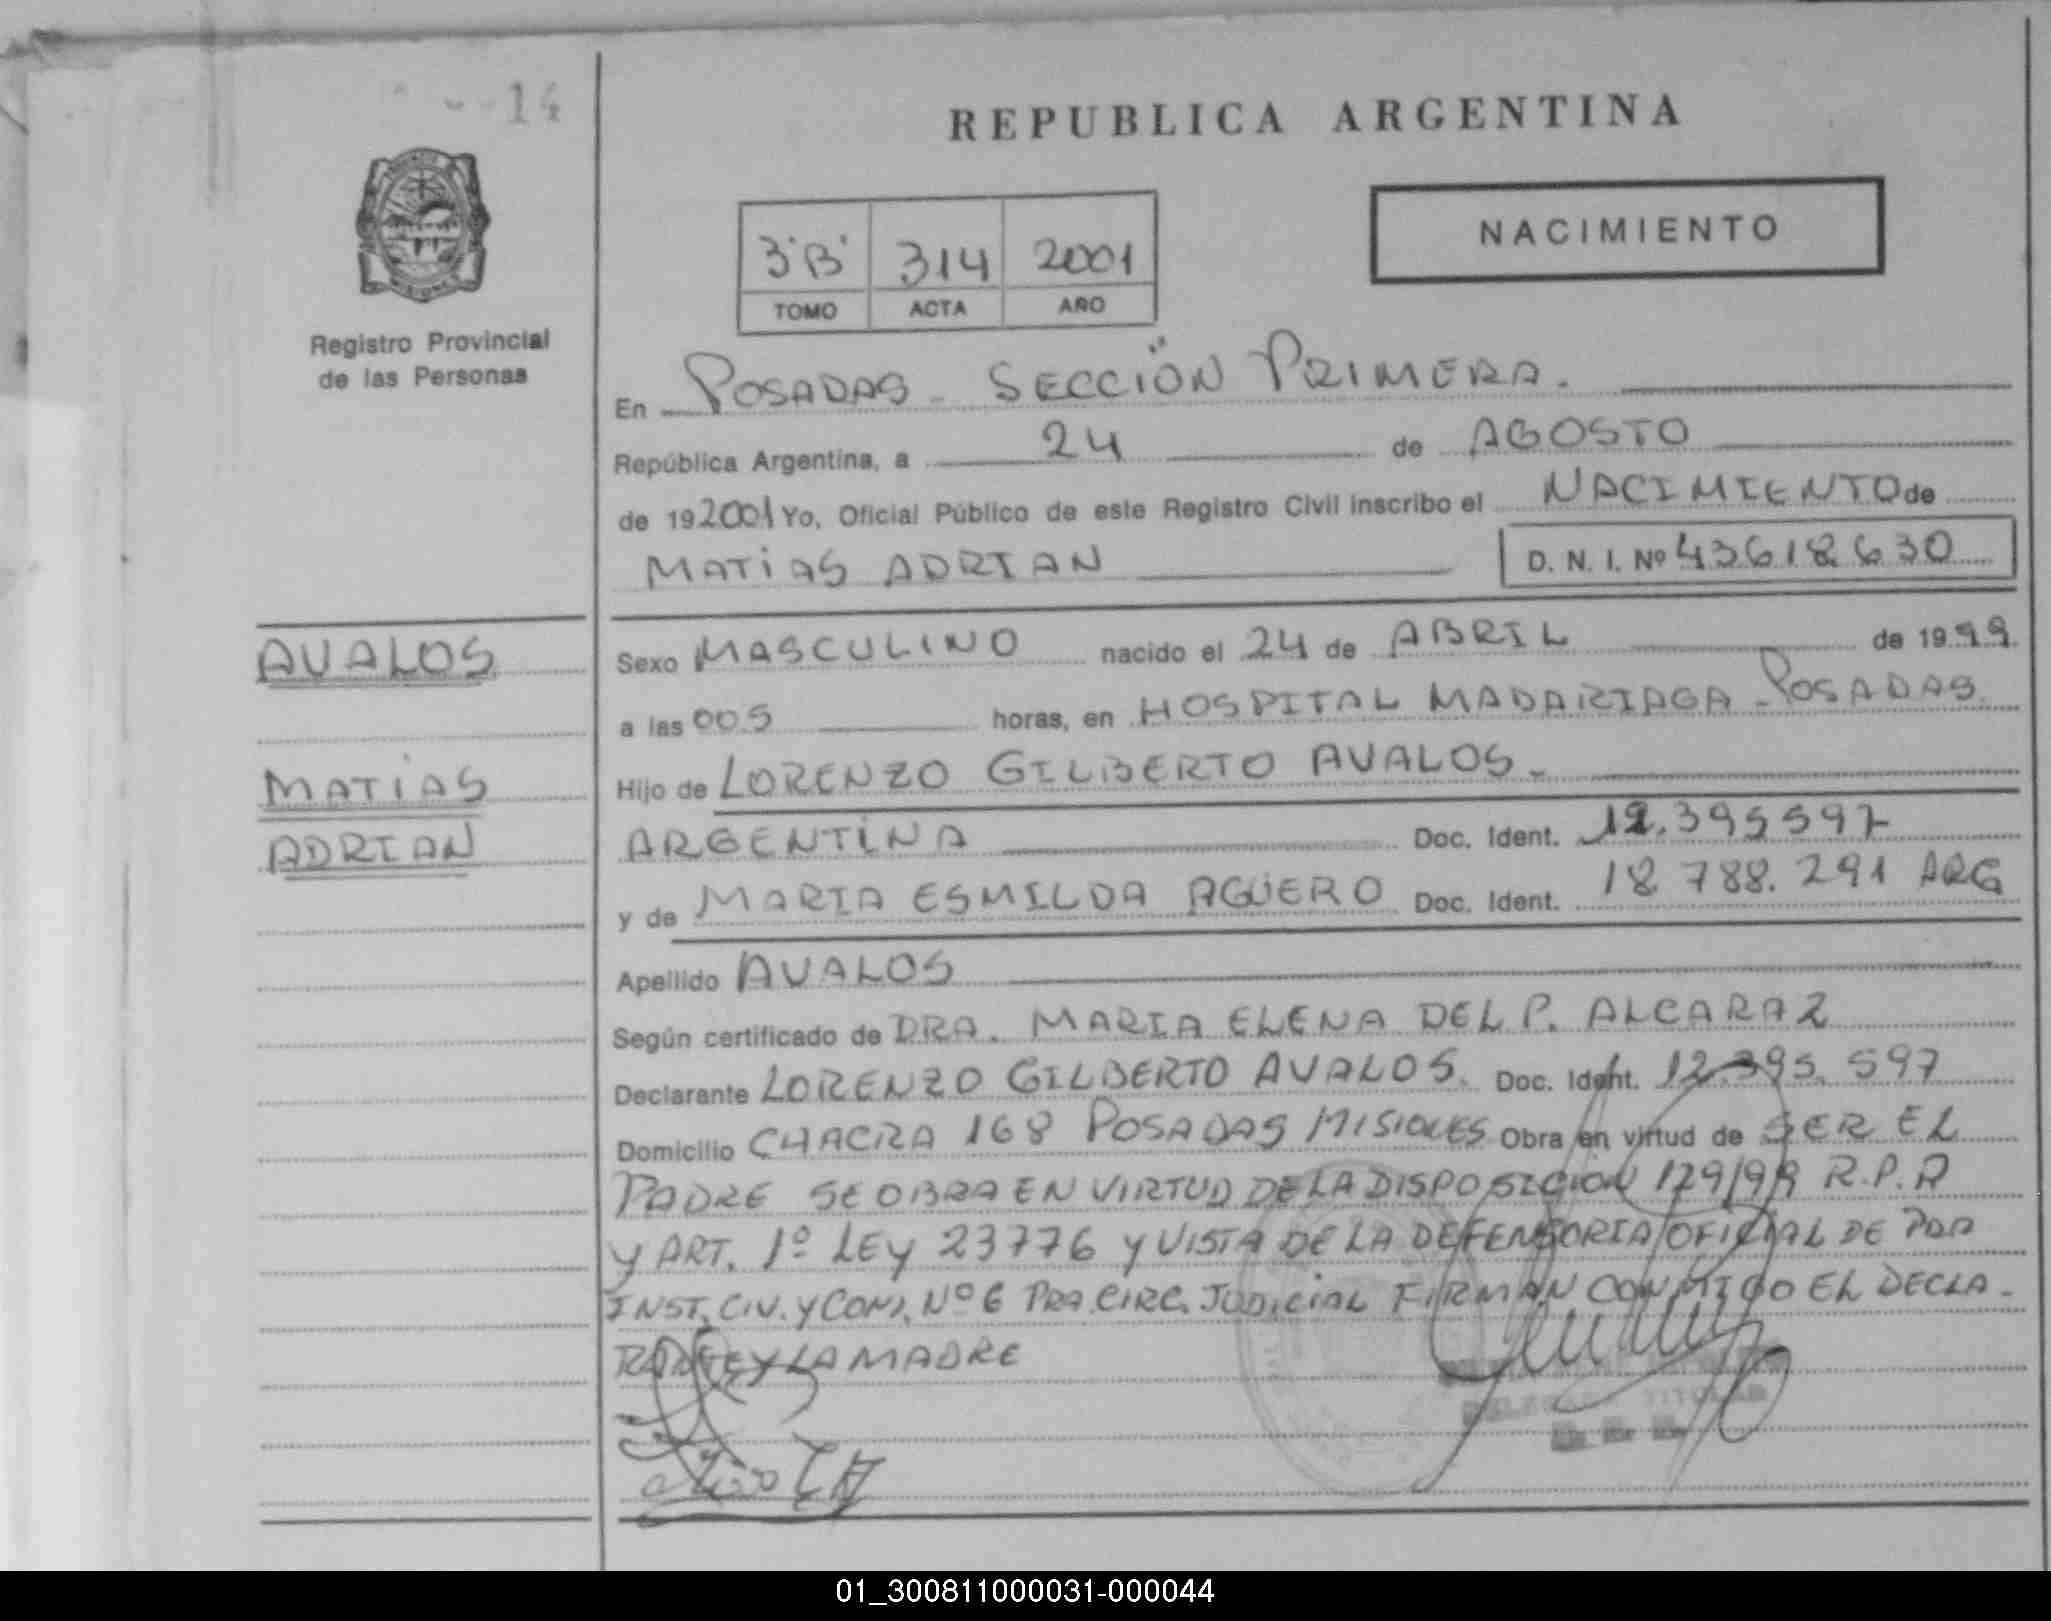 14
REPUBLICA ARGENTINA
NACIMIENTO
3"B" 314 2001
TOMO ACTA AÑO
Registro Provincial
de las Personas
En POSADAS - SECCIÓN PRIMERA.
República Argentina, a 24 de AGOSTO
de 192001 Yo, Oficial Público de este Registro Civil inscribo el NACIMIENTO de
MATIAS ADRIAN D. N. I. Nº 43618.630
AVALOS
MATIAS
ADRIAN
Sexo MASCULINO nacido el 24 de ABRIL de 1999
a las 005 horas, en HOSPITAL MADARIAGA - POSADAS.
Hijo de LORENZO GILBERTO AVALOS.-
ARGENTINA Doc. Ident. 12.395597
y de MARIA ESMILDA AGÜERO Doc. Ident. 18.788.291 ARG
Apellido AVALOS
Según certificado de DRA. MARIA ELENA DEL P. ALCARAZ
Declarante LORENZO GILBERTO AVALOS. Doc. Ident. 12.395.597
Domicilio CHACRA 168 POSADAS MISIONES Obra en virtud de SER EL
PADRE SE OBRA EN VIRTUD DE LA DISPOSICION 179/99 R.P.P
Y ART. 1º LEY 23776 Y VISTA DE LA DEFENSORIA OFICIAL DE
INST. CIV. Y COM. Nº 6 PRA. CIRC. JUDICIAL FIRMAN CONMIGO EL DECLA-
RANTE Y LA MADRE
TITULAR
01_300811000031-000044